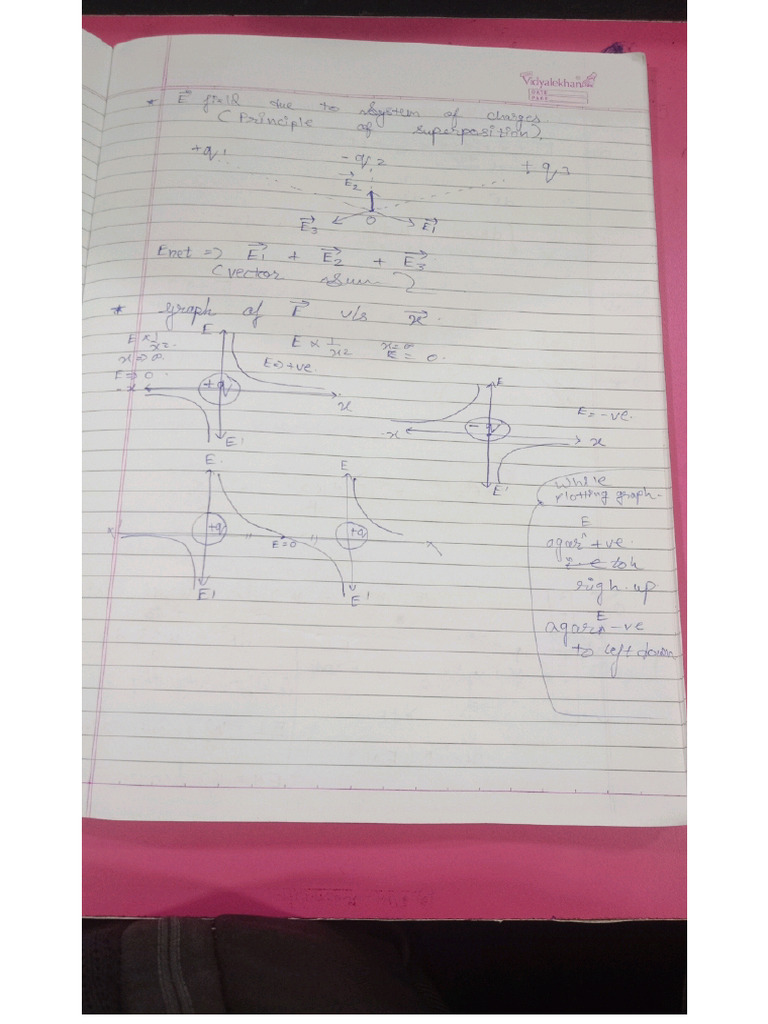 Vidyalekhan
DATE
PAGE
* E⃗ field due to System of charges.
(Principle of superposition).
+q1 -q2 + q3
E⃗2
E⃗3 O E⃗1
Enet => E⃗1 + E⃗2 + E⃗3
(vector Sum)
* graph of E⃗ v/s x⃗.
E ∝ 1/x2.
x => ∞.
E => 0.
E
E ∝ 1/x2 x=∞
E = 0.
E=>+ve.
-x +q x
E'
E
E = -ve.
-x -q x
E'
E E
x +q " E=0 " +q x
E' E'
While
plotting graph.
E
agar ^ +ve
toh
righ. up
E
agar ^ -ve
to left down